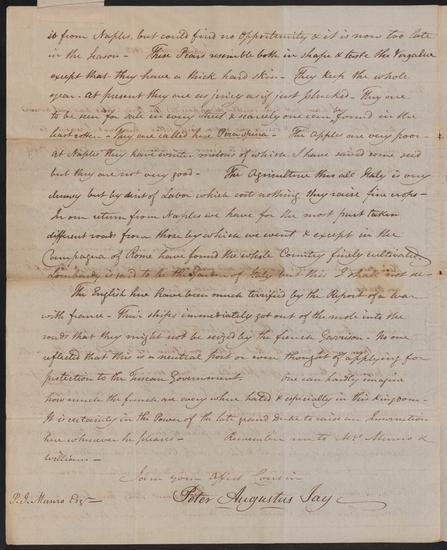 it from Naples, but could find no opportunity & it is now too late
in the Season — These Pears resemble both in shape & taste the Vergalieu
except that they have a thick hard skin — They keep the whole
year. At present they are as juicy as if just plucked — They are
to be seen for sale in every Street & scarcely one can be found in the
least rotten. They are called here — The Apples are very poor —
At Naples they have winter melons of which I have saved some seed
but they are not very good — The Agriculture thro all Italy is very
clumsy but by dint of Labor which costs nothing they raise fine crops —
In our return from Naples we have for the most part taken
different roads from those by which we went & except in the
Campagna of Rome have found the whole Country finely cultivated
Lombardy is said to be the Garden of Italy but this I shall not see —
The English here have been much terrified by the Report of a war
with france — Their ships immediately got out of the mole into the
roads that they might not be seized by the french Garrison — No one
reflected that this is a neutral port or even thought of applying for
protection to the Tuscan Government. One can hardly imagine
how much the french are every where hated & especially in this kingdom —
It is certainly in the Power of the late grand Duke to raise an Insurrection
here whenever he pleases — Remember me to Mrs Munro &
William —
I am your Affect Cousin
Peter Augustus Jay
P. J. Munro Esq —